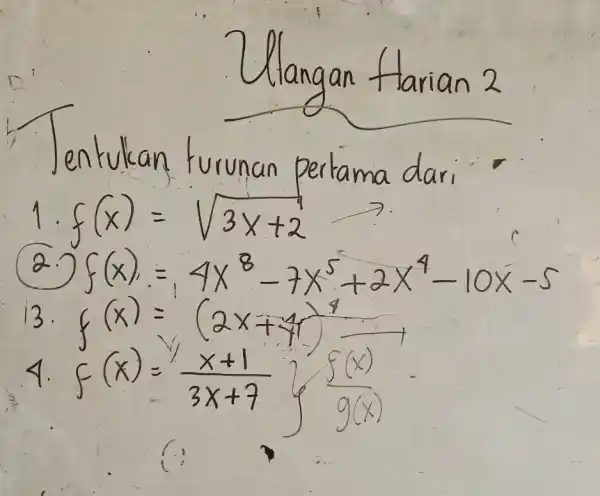 Ulangan Harian 2
Tentukan turunan pertama dari
1. f(x) = √3x+2
2. f(x) = 4x⁸ - 7x⁵ + 2x⁴ - 10x - 5
3. f(x) = (2x+4)⁴
4. f(x) = x+1 / 3x+7 } f(x) / g(x)